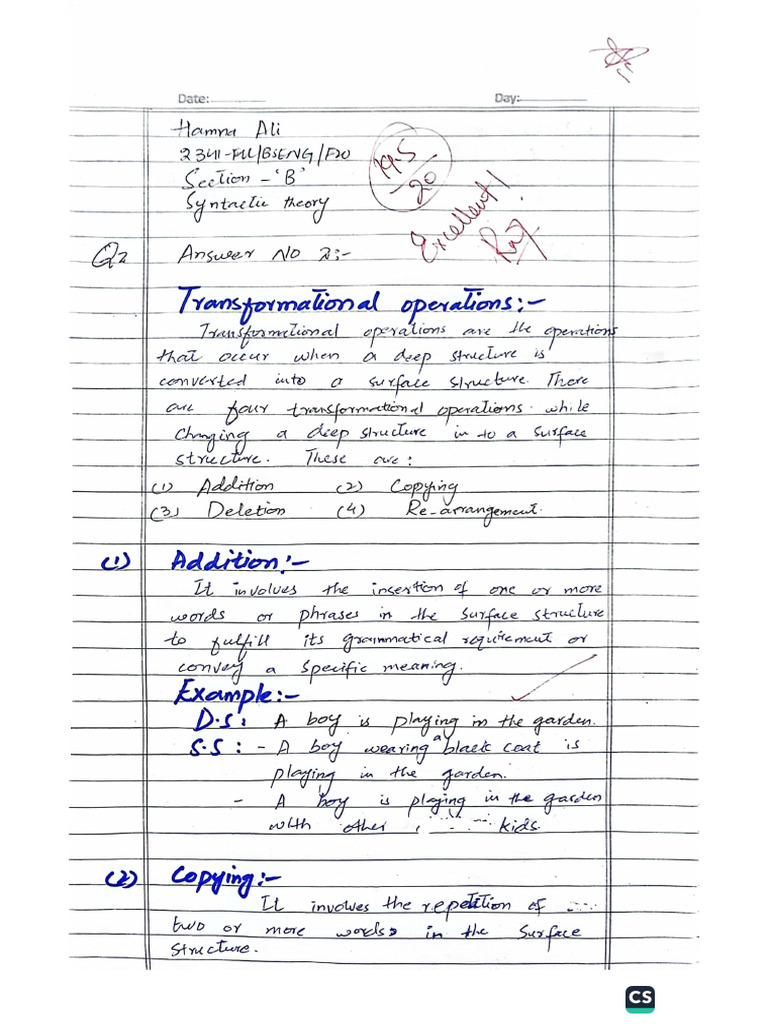 Date: Day:
Hamna Ali
2341-FLL/BSENG/F20
Section - 'B'
Syntactic theory
19.5/20
Excellent!
Q2 Answer No 2:-
Transformational operations:-
Transformational operations are the operations
that occur when a deep structure is
converted into a surface structure. There
are four transformational operations while
changing a deep structure in to a surface
structure. These are:
(1) Addition (2) Copying
(3) Deletion (4) Re-arrangement.
(1) Addition:-
It involves the insertion of one or more
words or phrases in the surface structure
to fulfill its grammatical requirement or
convey a specific meaning.
Example:-
D.S: A boy is playing in the garden.
S.S: - A boy wearing a black coat is
playing in the garden.
- A boy is playing in the garden
with other kids.
(2) Copying:-
It involves the repetition of
two or more words in the surface
structure.
CS